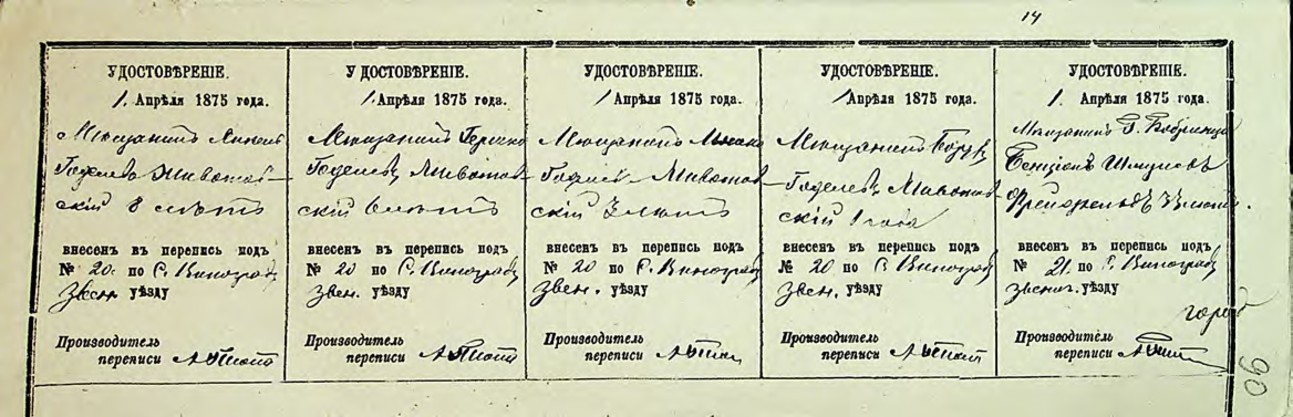 14
УДОСТОВѢРЕНІЕ.
1. Апрѣля 1875 года.
Мѣщанинъ
Годелевъ Животов-
скій 8 лѣтъ
внесенъ въ перепись подъ
№ 20 по С. Виноградъ
Звен. уѣзду
Производитель
переписи
УДОСТОВѢРЕНІЕ.
1. Апрѣля 1875 года.
Мѣщанинъ Гершко
Годелевъ Животов-
скій 6 лѣтъ
внесенъ въ перепись подъ
№ 20 по С. Виноградъ
Звен. уѣзду
Производитель
переписи
УДОСТОВѢРЕНІЕ.
1 Апрѣля 1875 года.
Мѣщанинъ
Годелевъ Животов-
скій 3 лѣтъ
внесенъ въ перепись подъ
№ 20 по С. Виноградъ
Звен. уѣзду
Производитель
переписи
УДОСТОВѢРЕНІЕ.
1 Апрѣля 1875 года.
Мѣщанинъ Борухъ
Годелевъ Животов-
скій 1 года
внесенъ въ перепись подъ
№ 20 по С. Виноградъ
Звен. уѣзду
Производитель
переписи
УДОСТОВѢРЕНІЕ.
1. Апрѣля 1875 года.
Мѣщанинъ Г. Бобринца
Бенціонъ Шмулевъ
лѣтъ.
внесенъ въ перепись подъ
№ 21. по С. Виноградъ
Звениг. уѣзду
город
Производитель
переписи
90